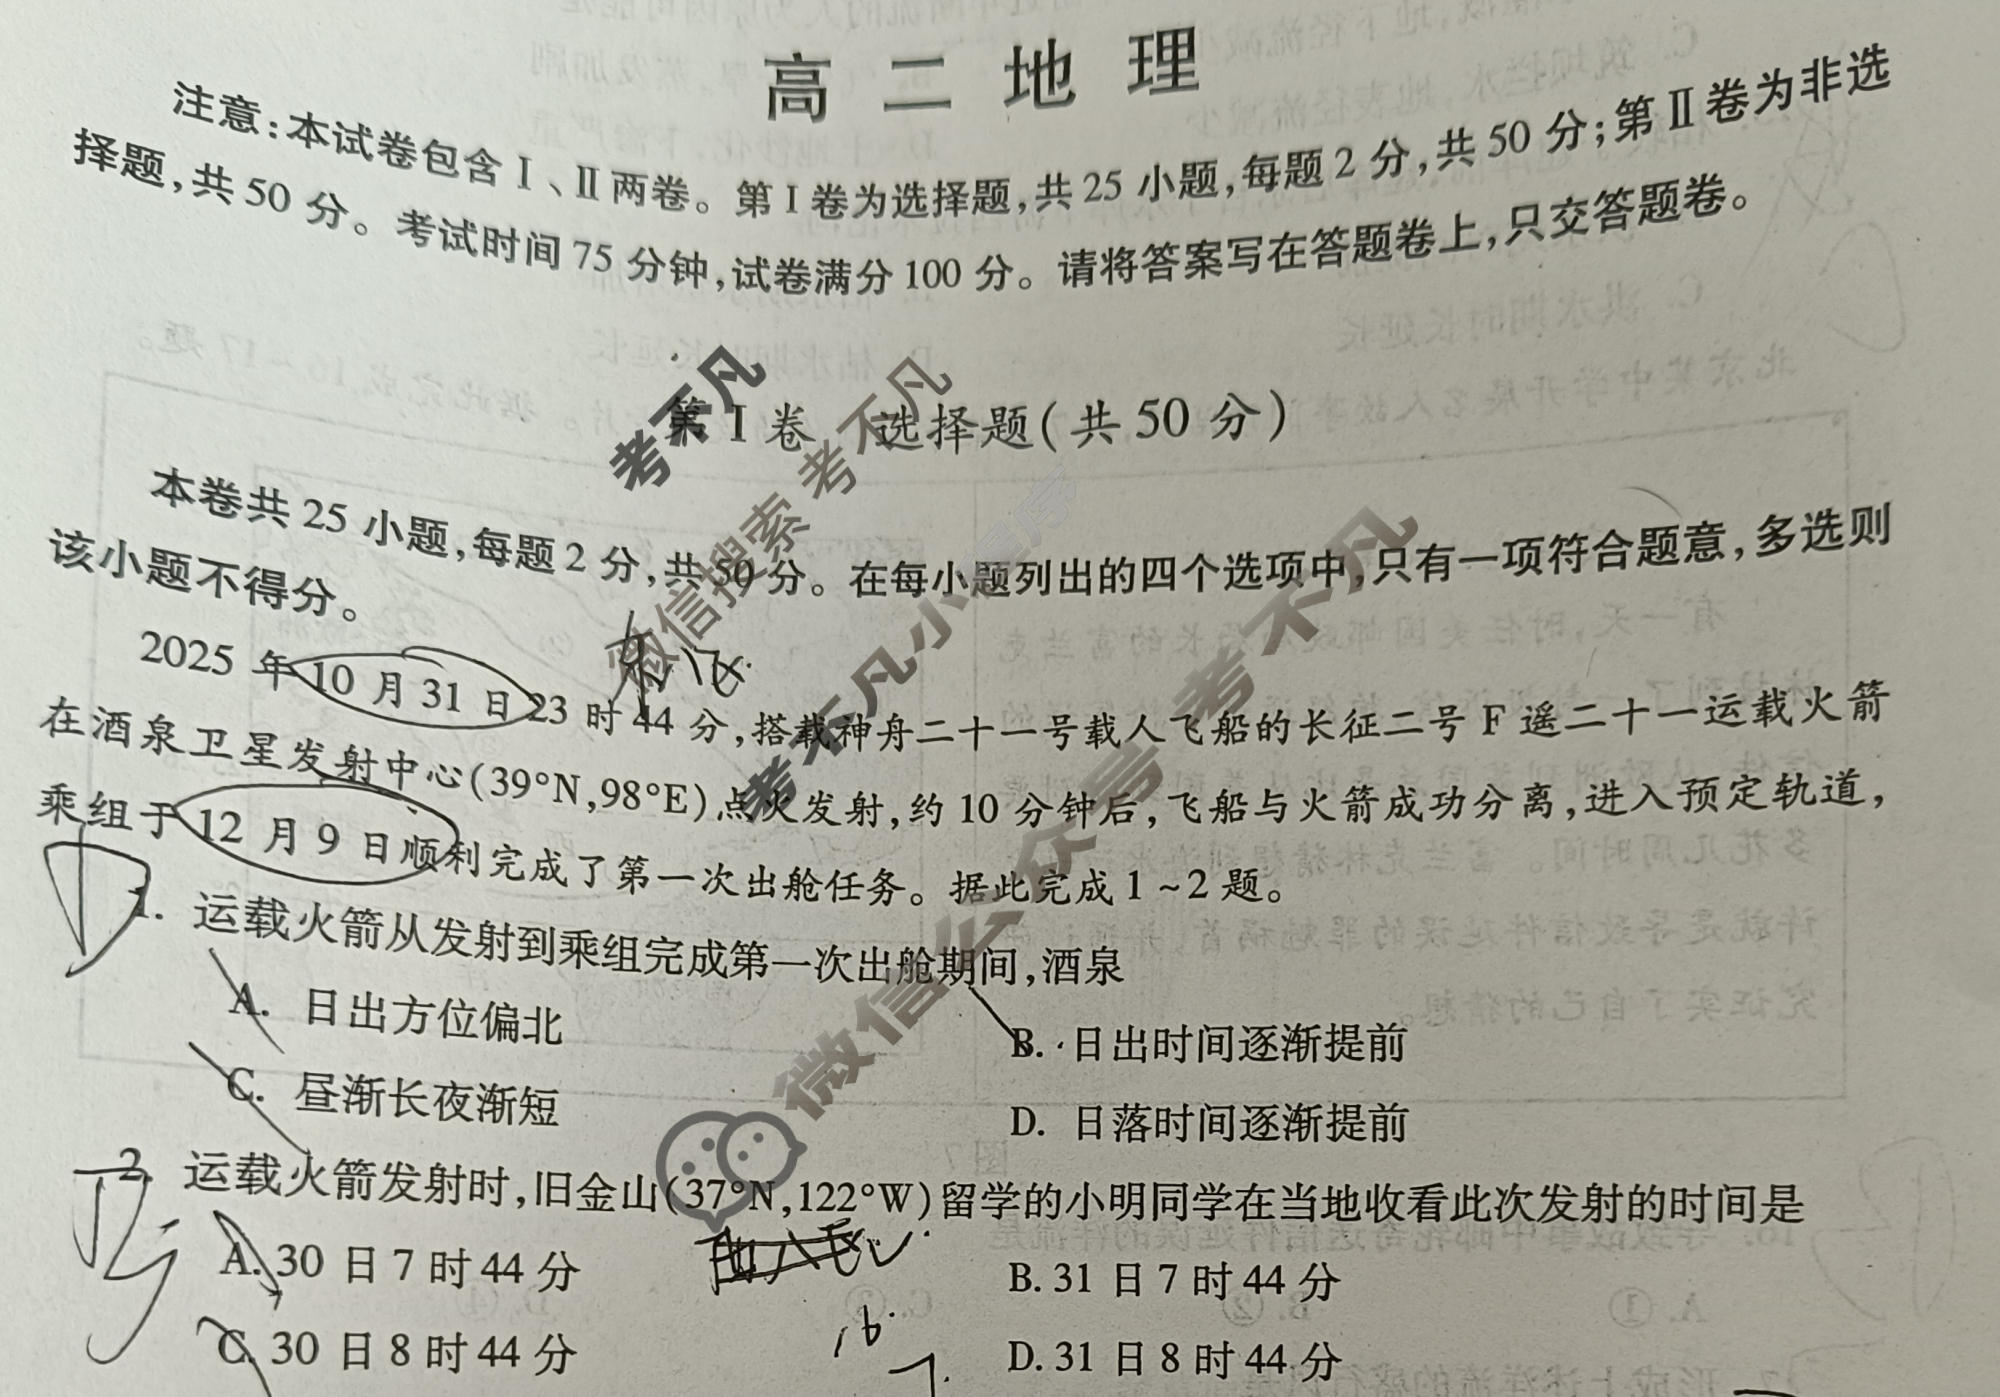 高二地理
注意:本试卷包含Ⅰ、Ⅱ两卷。第Ⅰ卷为选择题,共25小题,每题2分,共50分;第Ⅱ卷为非选
择题,共50分。考试时间75分钟,试卷满分100分。请将答案写在答题卷上,只交答题卷。
第Ⅰ卷 选择题(共50分)
本卷共25小题,每题2分,共50分。在每小题列出的四个选项中,只有一项符合题意,多选则
该小题不得分。
2025年10月31日23时44分,搭载神舟二十一号载人飞船的长征二号F遥二十一运载火箭
在酒泉卫星发射中心(39°N,98°E)点火发射,约10分钟后,飞船与火箭成功分离,进入预定轨道,
乘组于12月9日顺利完成了第一次出舱任务。据此完成1~2题。
1. 运载火箭从发射到乘组完成第一次出舱期间,酒泉
A. 日出方位偏北
B. 日出时间逐渐提前
C. 昼渐长夜渐短
D. 日落时间逐渐提前
2. 运载火箭发射时,旧金山(37°N,122°W)留学的小明同学在当地收看此次发射的时间是
A. 30日7时44分
B. 31日7时44分
C. 30日8时44分
D. 31日8时44分
16.
考不凡
微信搜索 考不凡
考不凡小程序
微信公众号 考不凡